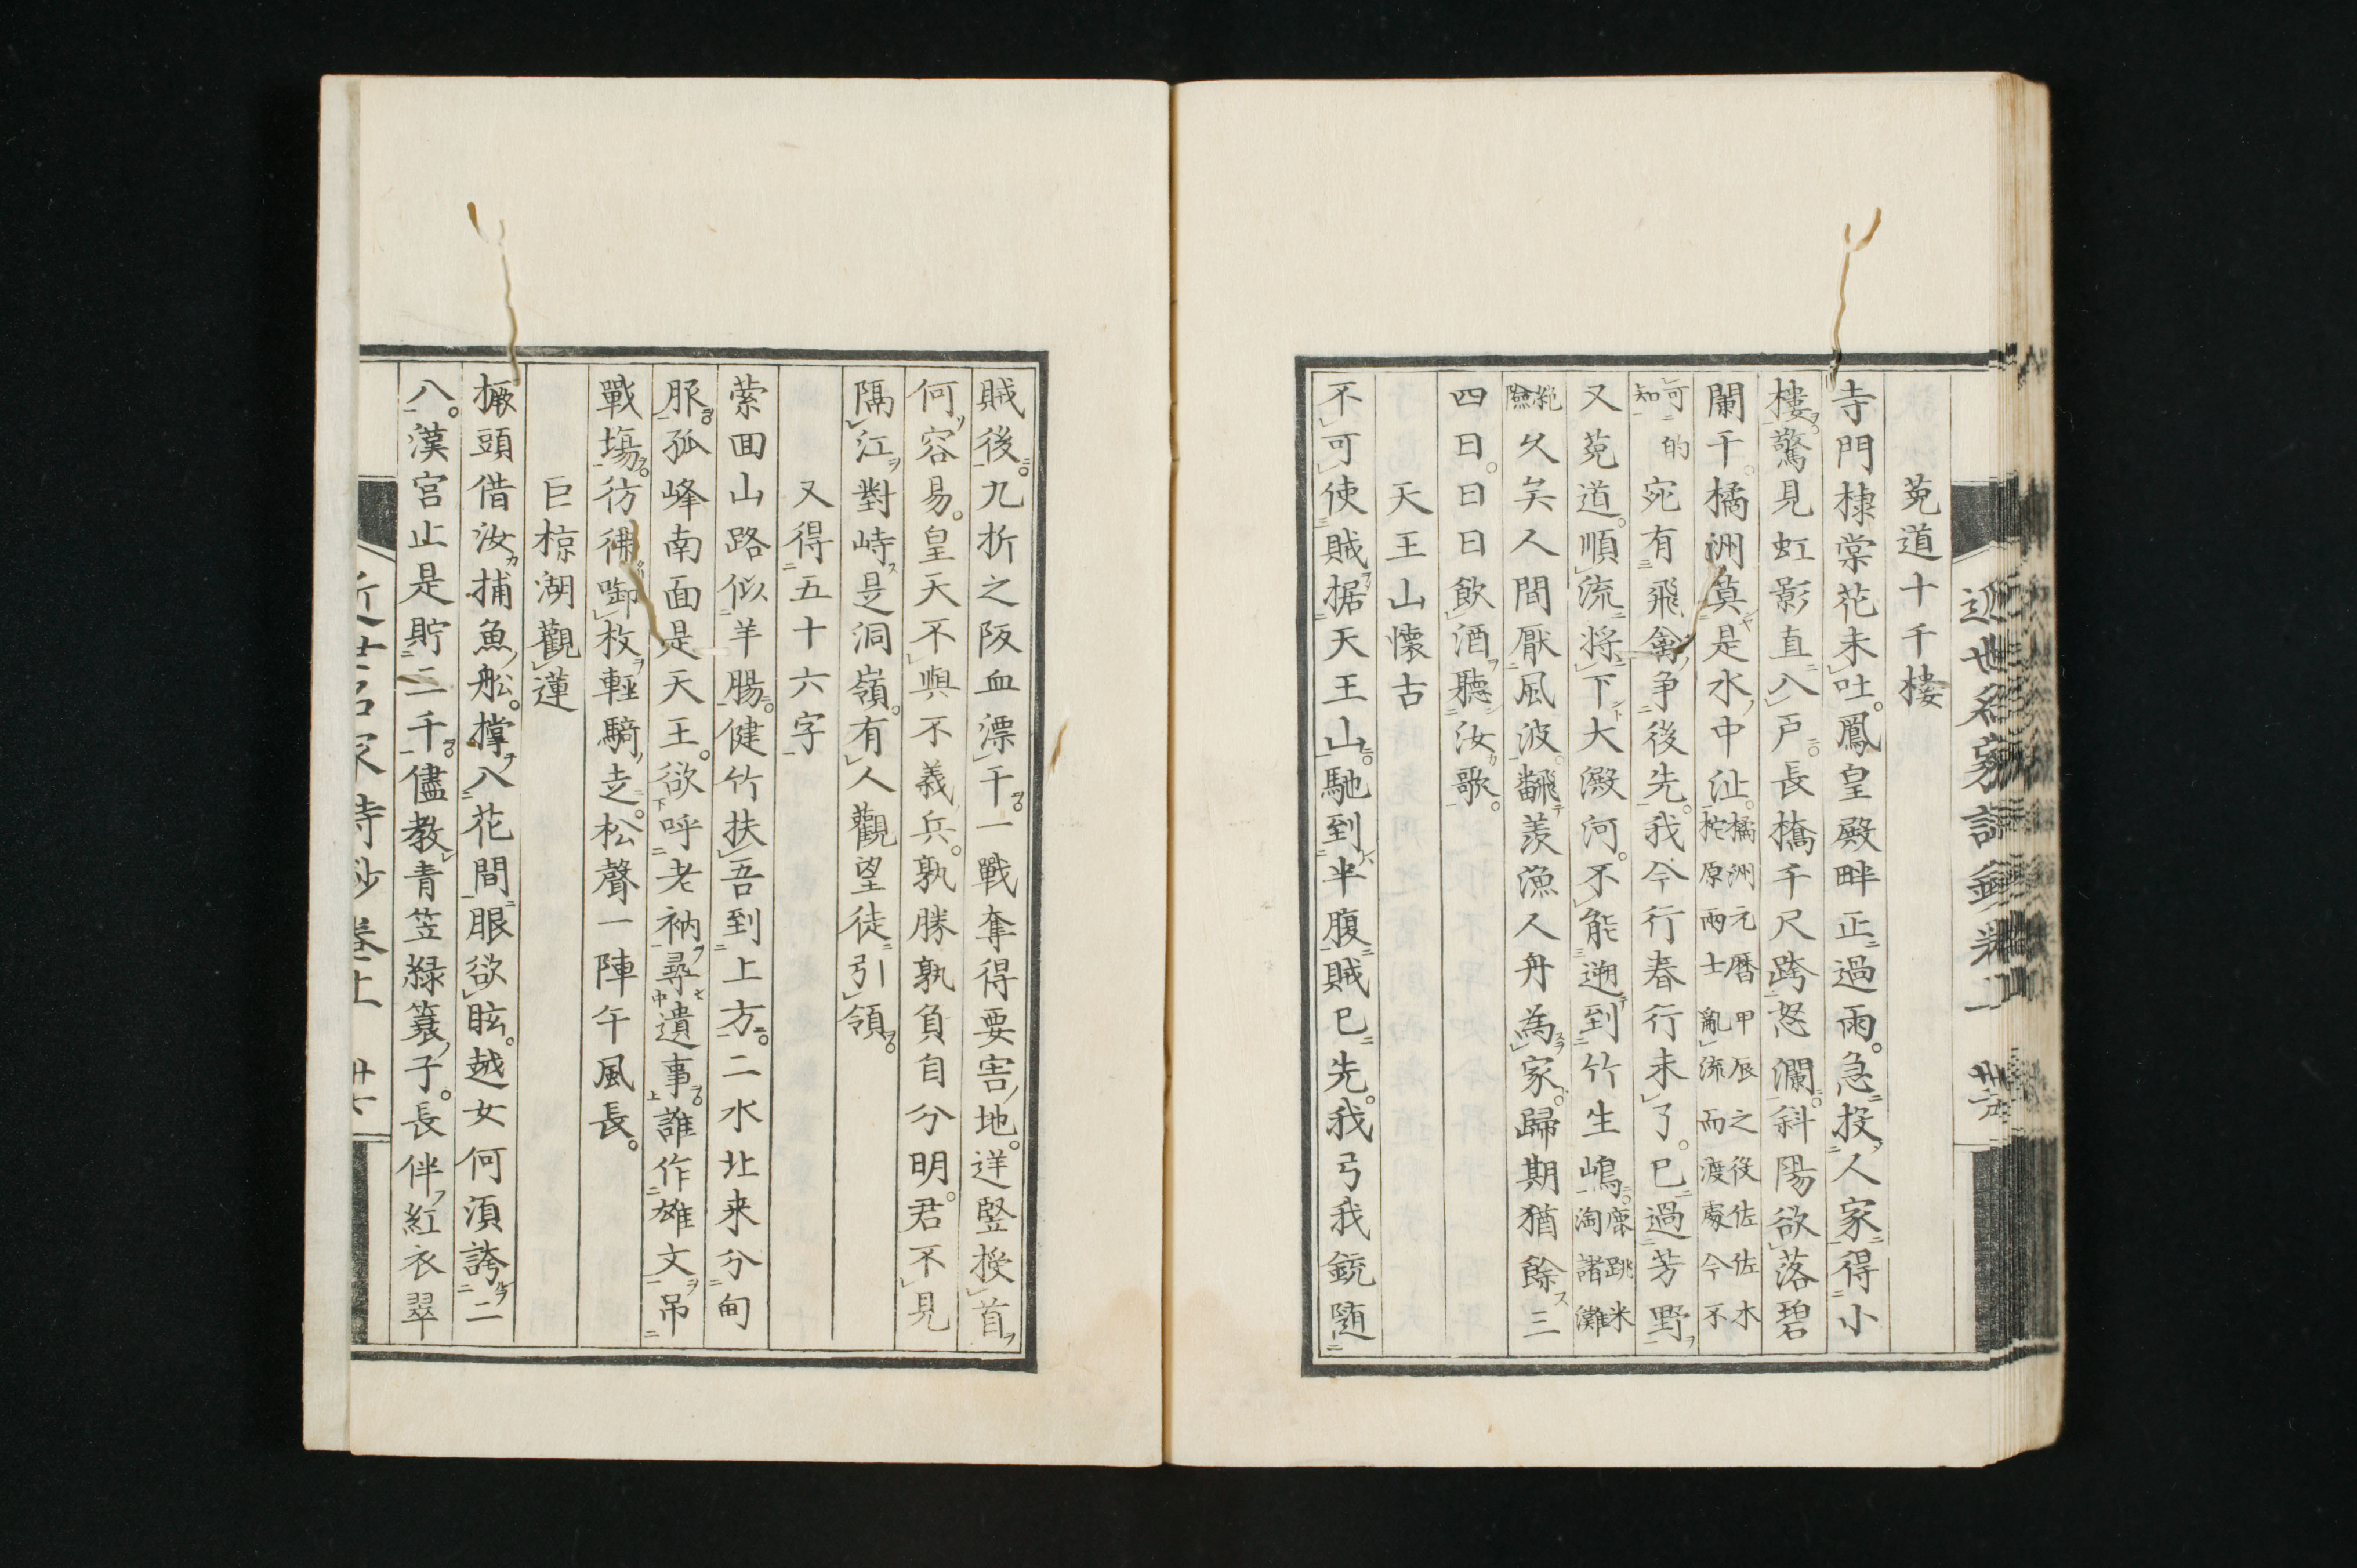 菟道十千樓
寺門棣棠花未吐。鳳皇殿畔正過雨。急投人家得小
樓。驚見虹影直入戸。長橋千尺跨怒瀾。斜陽欲落碧
闌干。橘洲莫是水中沚。橘洲元暦甲辰之役佐佐木梶原兩士亂流而渡處今不
可知的宛有飛禽爭後先。我今行春行未了。已過芳野
又菟道。順流將下大澱河。不能遡到竹生嶋。鹿跳米淘諸灘
絶險久矣人間厭風波。飜羨漁人舟為家。歸期猶餘三
四日。日日飲酒聽汝歌。
天王山懷古
不可使賊据天王山。馳到半腹賊已先。我弓我銃隨
賊後。九折之阪血漂干。一戰奪得要害地。逆豎授首
何容易。皇天不與不義兵。孰勝孰負自分明。君不見
隔江對峙是洞嶺。有人觀望徒引領。
又得五十六字
縈回山路似羊腸。健竹扶吾到上方。二水北来分甸
服。孤峰南面是天王。欲呼老衲尋遺事。誰作雄文弔
戰塲。彷彿啣枚輕騎走。松聲一陣午風長。
巨椋湖觀蓮
橛頭借汝捕魚舩。撑入花間眼欲眩。越女何須誇二
八。漢宮止是貯二千。儘教青笠緑簑子。長伴紅衣翠
近世名家詩鈔卷上